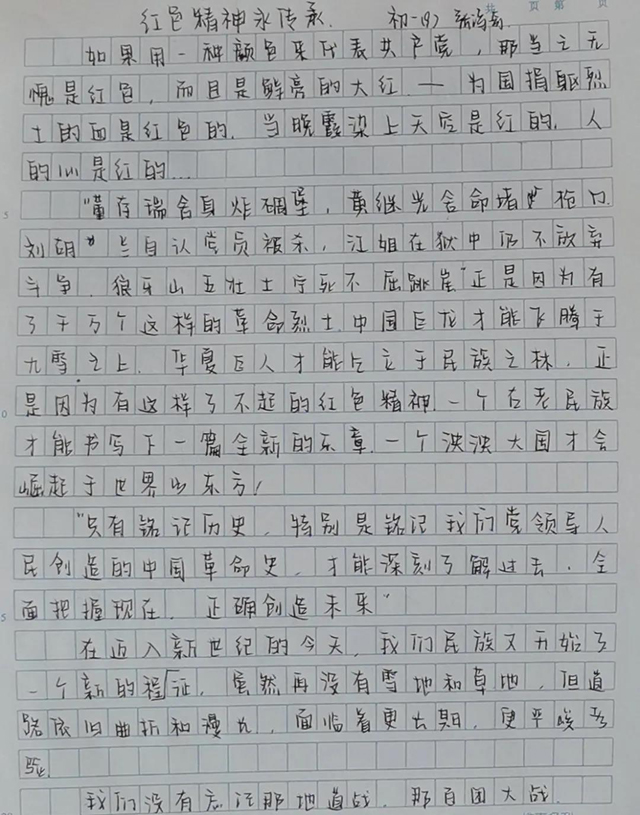 红色精神永传承. 初一(9)
共 页 第 页
如果用一种颜色来代表共产党，那当之无
愧是红色，而且是鲜亮的大红——为国捐躯烈
士的血是红色的.当晚霞染上天后是红的.人
的心是红的…
"董存瑞舍身炸碉堡，黄继光舍命堵枪口.
刘胡兰自认党员被杀，江姐在狱中仍不放弃
斗争.狼牙山五壮士宁死不屈跳崖"正是因为有
了千万个这样的革命烈士.中国巨龙才能飞腾于
九雪之上.华夏巨人才能屹立于民族之林.正
是因为有这样了不起的红色精神.一个古老民族
才能书写下一篇全新的乐章.一个泱泱大国才会
崛起于世界的东方！
"只有铭记历史，特别是铭记我们党领导人
民创造的中国革命史，才能深刻了解过去.全
面把握现在.正确创造未来"
在迈入新世纪的今天，我们民族又开始了
一个新的程征，虽然再没有雪地和草地，但道
路依旧曲折和漫长，面临着更长期，更严峻考
验.
我们没有忘记那地道战.那百团大战.